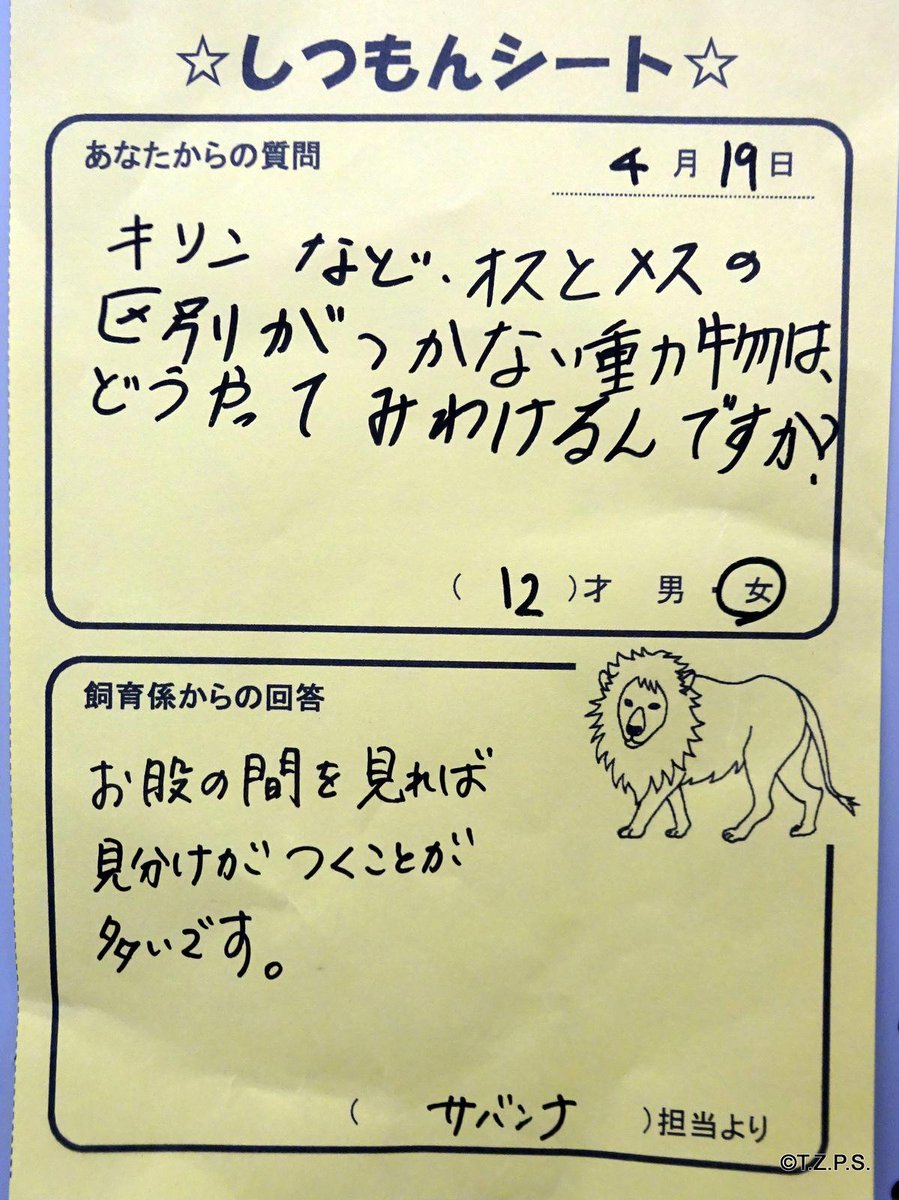 ☆しつもんシート☆
あなたからの質問
4月19日
キリンなど、オスとメスの
区別がつかない動物は、
どうやってみわけるんですか?
(12)才 男・女
飼育係からの回答
お股の間を見れば
見分けがつくことが
多いです。
(サバンナ)担当より
©T.Z.P.S.